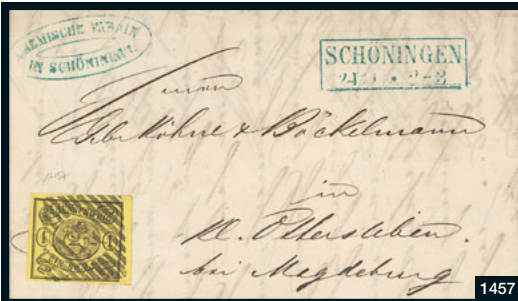 CHEMISCHE FABRIK
IN SCHÖNINGEN
SCHÖNINGEN
24 1 * 2-3
Herrn
Gebr Köhne & Böckelmann
in
Kl. Ottersleben.
bei Magdeburg
1457
1
1
1457